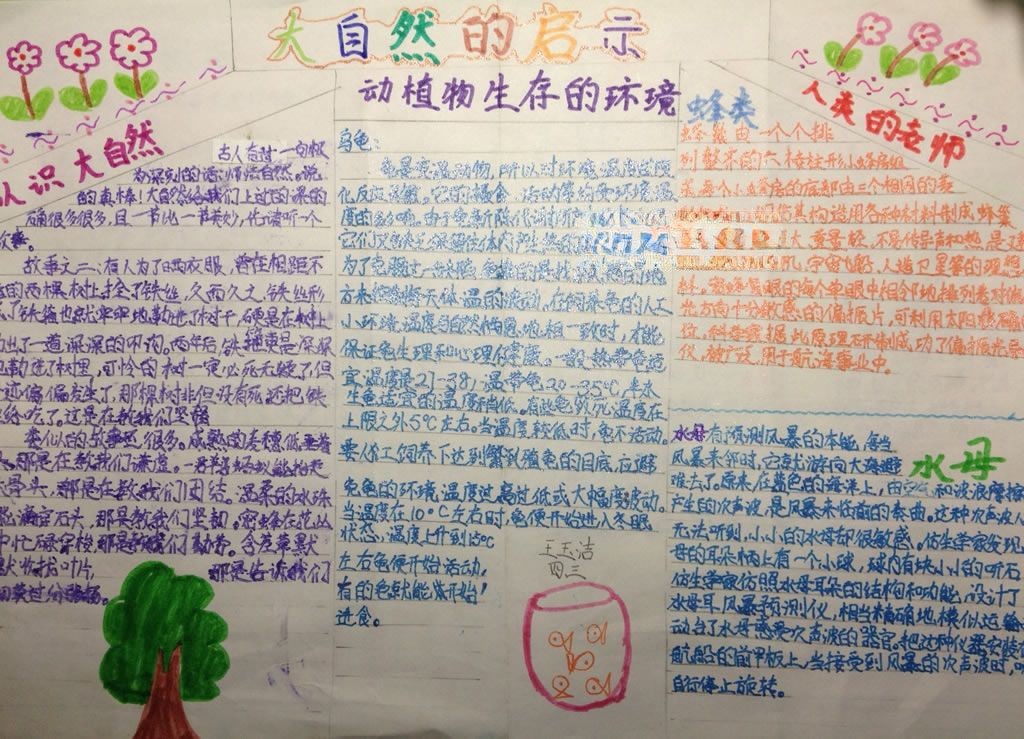 大自然的启示
动植物生存的环境
认识大自然
古人有过一句极
为深刻的话:师法自然。说
的真棒!大自然给我们上过的课的
确很多很多,且一节比一节美妙,
故事之二:有人为了晒衣服,曾在相距不
的两棵树上拴了铁丝,久而久之,铁丝形
了铁箍也就牢牢地勒进了树干,硬是在树上
出了一道深深的
勒进了树里,可怜的树一定必死无疑了,但
偏偏发生了,那棵树非但没有死,还把铁
给吃了。这是在教我们坚韧
类似的故事还很多。成熟的麦穗低垂着
那是在教我们谦虚。一群蚂蚁能抬走
骨头,那是在教我们团结。温柔的水珠
滴穿石头,那是教我们坚韧。蜜蜂在花丛
中忙碌穿梭,那是教我们勤劳。
收拢叶片, 那是告诉我们
乌龟:
龟是变温动物,所以对环境温度的变
化反应灵敏。它的摄食、活动等均受环境温
度的影响。由于龟新陈代谢
它们又缺乏保留住体内产生热
为了
方来 大体温的波动,在饲养龟的人工
小环境,温度与自然栖息地相一致时,才能
保证龟生理和心理健康。一般热带龟适
宜温度是27-38),温带龟20-35℃,半水
生龟适宜的温度稍低。有些龟致死温度在
上限之外5℃左右。当温度较低时,龟不活动。
要人工饲养下达到繁殖龟的目底,应避
免龟的环境温度过高过低或大幅度波动。
当温度在10℃左右时,龟便开始进入冬眠
状态,温度上升到15℃
左右龟便开始活动,
有的龟就能够开始
进食。
王玉洁
四三
蜂类
人类的老师
蜂巢由一个个排
列整齐的六棱柱形小蜂房组
成,每个小蜂房的底部由三个相同的菱
仿其构造用各种材料制成蜂巢
大、重量轻、不易传导声和热,是
宇宙飞船、人造卫星等的理想
料。蜜蜂复眼的每个单眼中相邻地排列着对偏振
光方向十分敏感的偏振片,可利用太阳准确定
位。科学家据此原理研制成功了偏振光导
仪,被广泛用于航海事业中。
水母
水母有预测风暴的本能,每当
风暴来邻时,它就游向大海避
难去了。原来,在蓝色的海洋上,由空气和波浪摩擦
产生的次声波,是风暴来临前的奏曲。这种次声波人
无法听到,小小的水母却很敏感。仿生学家发现
母的耳朵柄上有一个小球,球内有块小小的听石
仿生学家仿照水母耳朵的结构和功能,设计了
水母耳风暴预测仪,相当精确地模似
动台了水母感受次声波的器官。把这种仪器安装在
航船的前甲板上,当接受到风暴的次声波时,可
自行停止旋转。